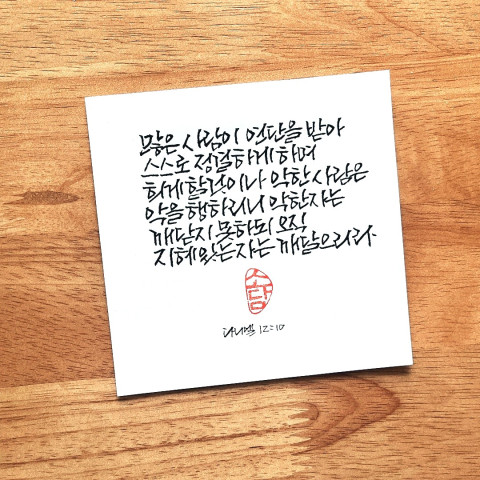 많은 사람이 연단을 받아
스스로 정결하게 하며
희게 할것이나 악한 사람은
악을 행하리니 악한자는
깨닫지 못하되 오직
지혜있는자는 깨달으리라
소담
다니엘 12:10